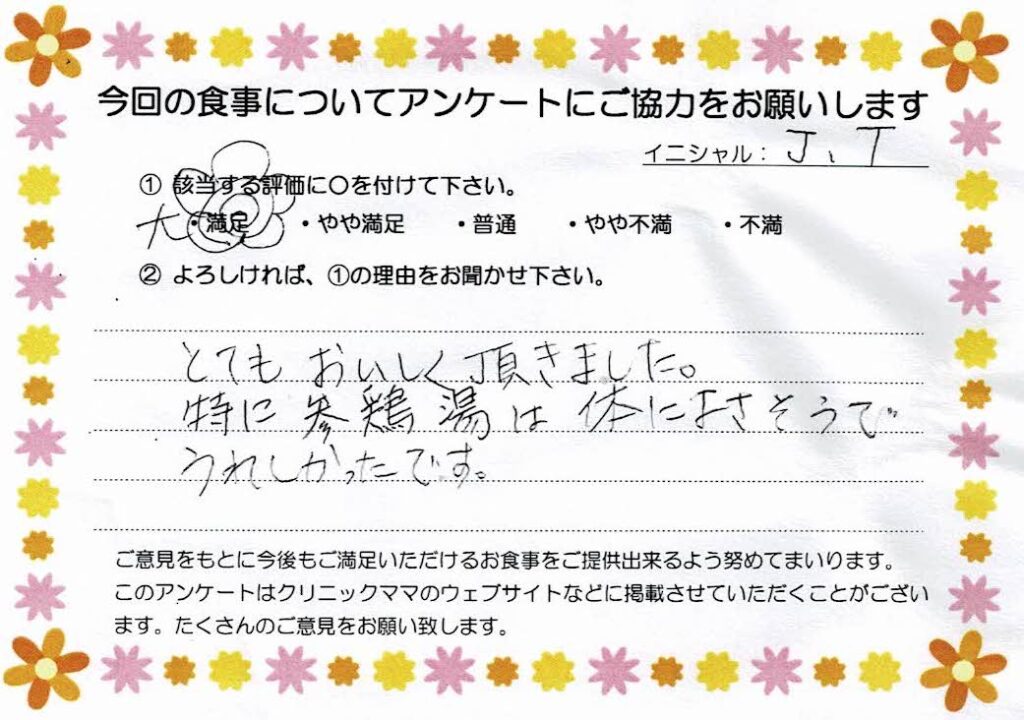 今回の食事についてアンケートにご協力をお願いします
イニシャル： J、T
① 該当する評価に〇を付けて下さい。
大・満足 ・やや満足 ・普通 ・やや不満 ・不満
② よろしければ、①の理由をお聞かせ下さい。
とても おいしく 頂きました。
特に 参鶏湯は 体によさそうで
うれしかったです。
ご意見をもとに今後もご満足いただけるお食事をご提供出来るよう努めてまいります。
このアンケートはクリニックママのウェブサイトなどに掲載させていただくことがござい
ます。たくさんのご意見をお願い致します。